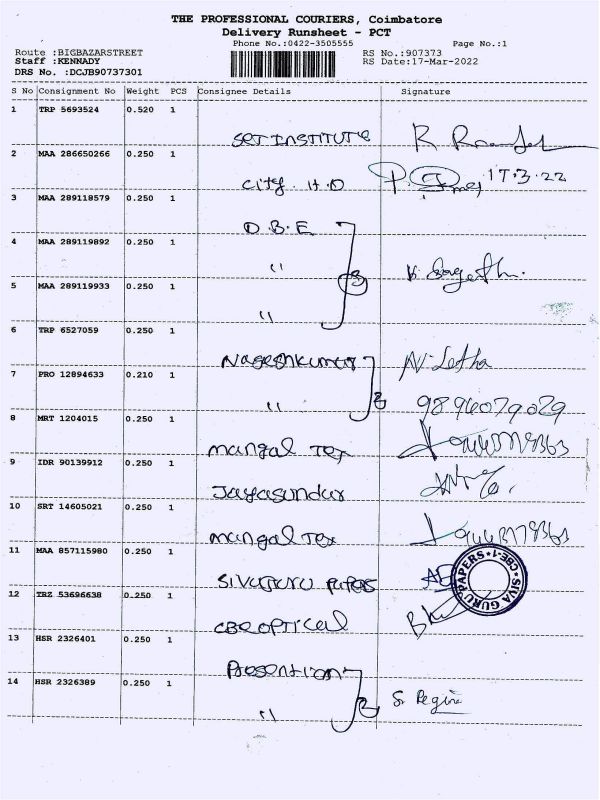 THE PROFESSIONAL COURIERS, Coimbatore
Delivery Runsheet - PCT
Phone No.:0422-3505555 Page No.:1
Route :BIGBAZARSTREET RS No.:907373
Staff :KENNADY RS Date:17-Mar-2022
DRS No. :DCJB90737301
S No Consignment No Weight PCS Consignee Details Signature
1 TRP 5693524 0.520 1
SET INSTITUTE R
2 MAA 286650266 0.250 1
City H.O 17.3.22
3 MAA 289118579 0.250 1
D.B.E
4 MAA 289119892 0.250 1
" 3
5 MAA 289119933 0.250 1
"
6 TRP 6527059 0.250 1
Nageshkumar N. Letha
7 PRO 12894633 0.210 1
" 2 9894079029
8 MRT 1204015 0.250 1
mangal Tex
9 IDR 90139912 0.250 1
Jayasundar
10 SRT 14605021 0.250 1
mangal Tex
11 MAA 857115980 0.250 1
SIVAGURU PAPERS
SIVA GURU PAPERS * CBE-1 *
12 TRZ 53696638 0.250 1
CBE OPTICAL
13 HSR 2326401 0.250 1
Presention
14 HSR 2326389 0.250 1
" 2 S. Regina